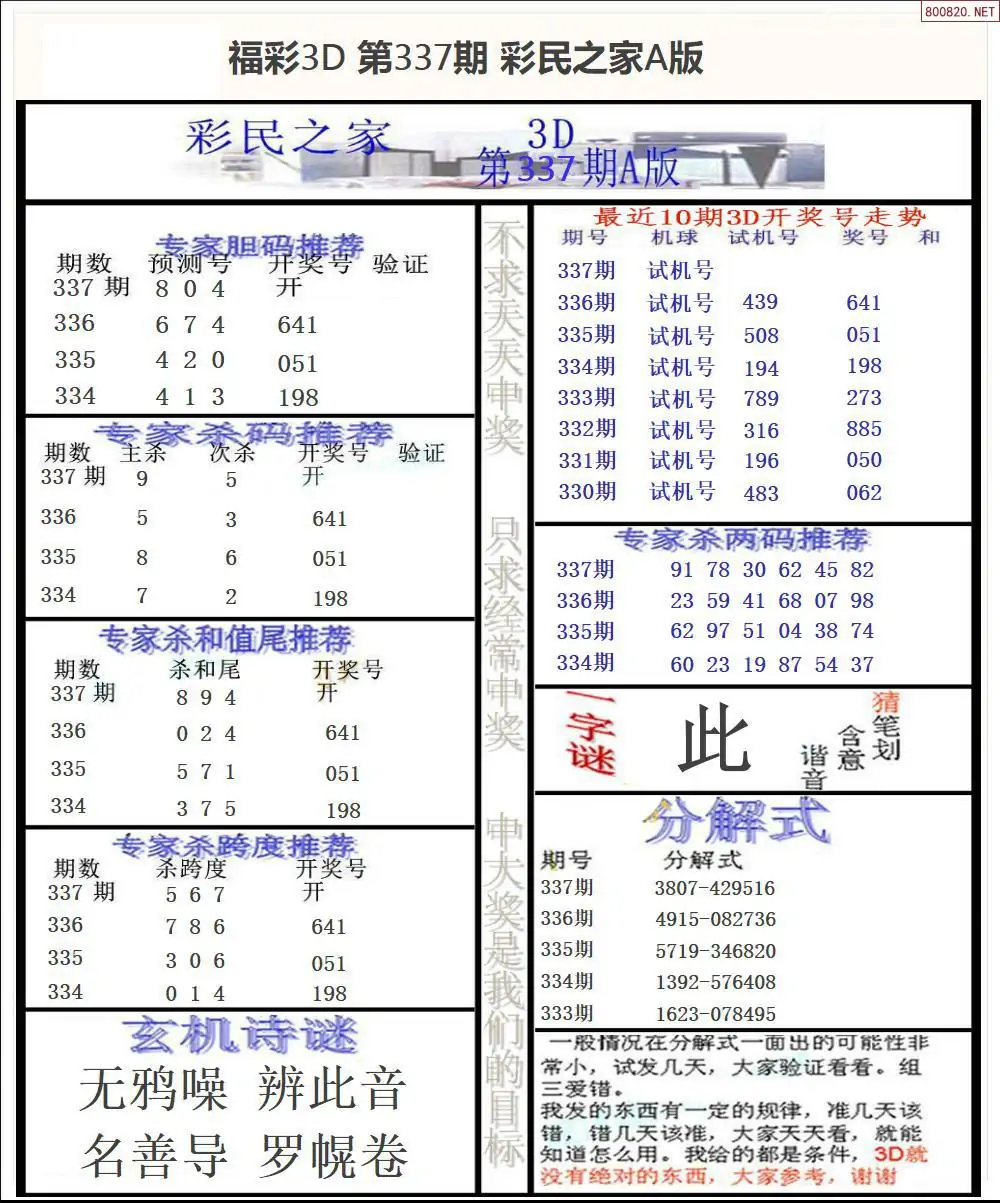 800820.NET
福彩3D 第337期 彩民之家A版
彩民之家 3D
第337期A版
专家胆码推荐
期数 预测号 开奖号 验证
337期 8 0 4 开
336 6 7 4 641
335 4 2 0 051
334 4 1 3 198
专家杀码推荐
期数 主杀 次杀 开奖号 验证
337期 9 5 开
336 5 3 641
335 8 6 051
334 7 2 198
专家杀和值尾推荐
期数 杀和尾 开奖号
337期 8 9 4 开
336 0 2 4 641
335 5 7 1 051
334 3 7 5 198
专家杀跨度推荐
期数 杀跨度 开奖号
337期 5 6 7 开
336 7 8 6 641
335 3 0 6 051
334 0 1 4 198
玄机诗谜
无鸦噪 辨此音
名善导 罗幌卷
不求天天中奖 只求经常中奖 中大奖是我们的目标
最近10期3D开奖号走势
期号 机球 试机号 奖号 和
337期 试机号
336期 试机号 439 641
335期 试机号 508 051
334期 试机号 194 198
333期 试机号 789 273
332期 试机号 316 885
331期 试机号 196 050
330期 试机号 483 062
专家杀两码推荐
337期 91 78 30 62 45 82
336期 23 59 41 68 07 98
335期 62 97 51 04 38 74
334期 60 23 19 87 54 37
一字谜
此
猜笔划
含意
谐音
分解式
期号 分解式
337期 3807-429516
336期 4915-082736
335期 5719-346820
334期 1392-576408
333期 1623-078495
一般情况在分解式一面出的可能性非
常小，试发几天，大家验证看看。组
三爱错。
我发的东西有一定的规律，准几天该
错，错几天该准，大家天天看，就能
知道怎么用。我给的都是条件，3D就
没有绝对的东西，大家参考，谢谢